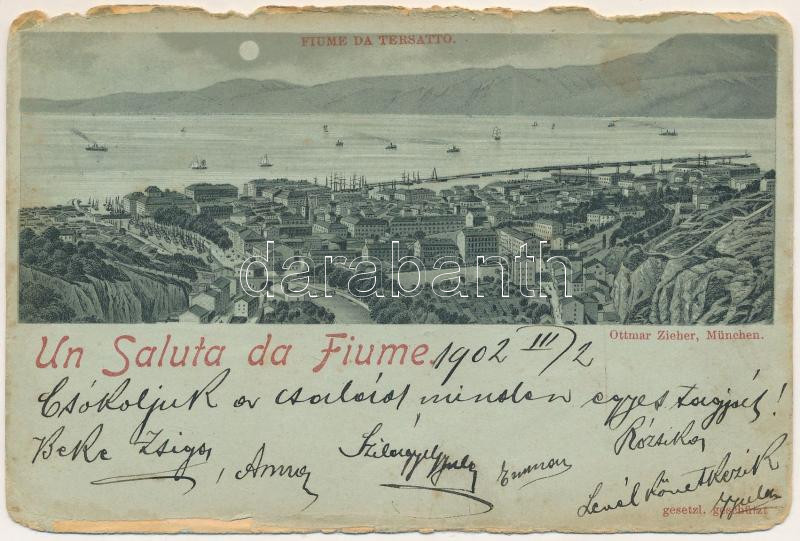 FIUME DA TERSATTO.
darabanth
Un Saluta da Fiume. 1902 III/2
Ottmar Zieher, München.
Csókoljuk a család minden egyes tagját!
Beke Zsiga, Anna Szilágyi Gyula Emma Rózsika
Levél következik
Gyula
gesetzl. geschützt